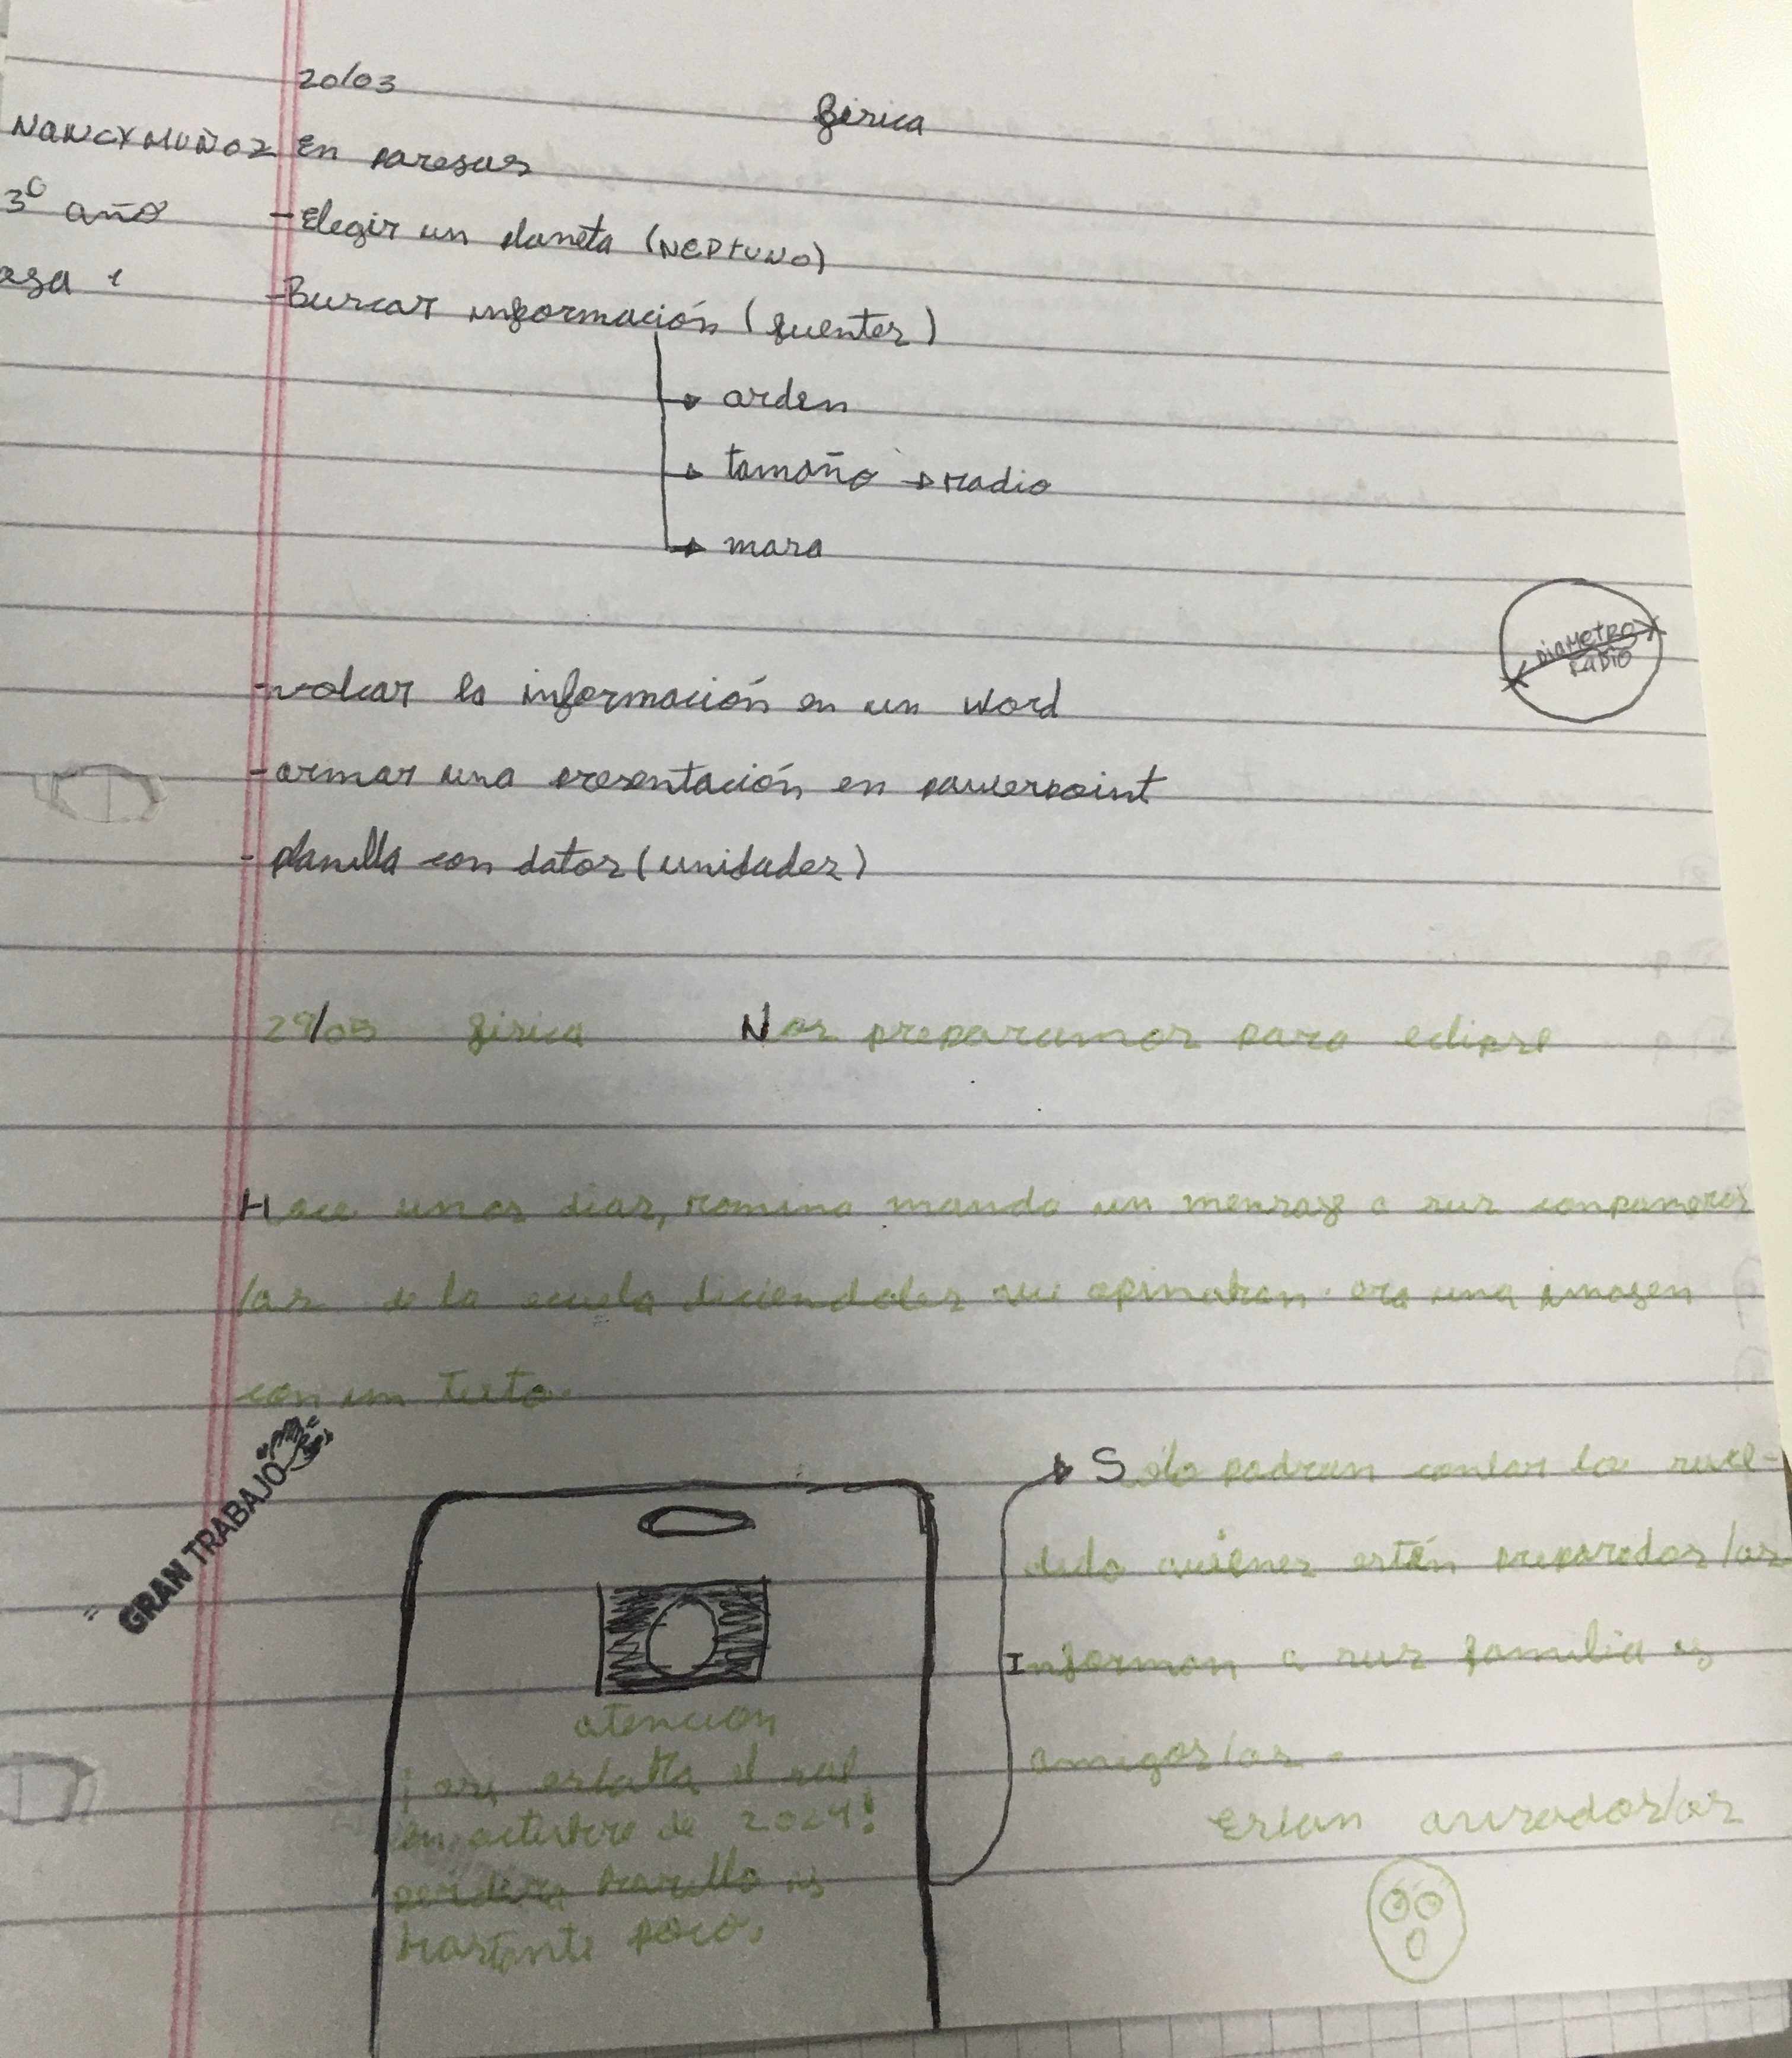 20/03
física
NANCY MUÑOZ
En parejas
3º año
- Elegir un planeta (NEPTUNO)
- Buscar información (fuentes)
orden
tamaño → radio
masa
DIAMETRO
RADIO
- volcar la información en un word
- armar una presentación en powerpoint
- planilla con datos (unidades)
física Nos preparamos para eclipse
Hace unos dias, romina mando un mensaje a sus conpañeros
/as de la escuela diciendoles que opinaban. era una imagen
con un texto.
GRAN TRABAJO
Sólo podran contar lo suce-
dido quienes estén preparados/as
Informen a sus familia y
amigos/as.
Estan avisados/as
atencion
¡ asi estalla el sol
en octubre de 2024!
bastante poco.